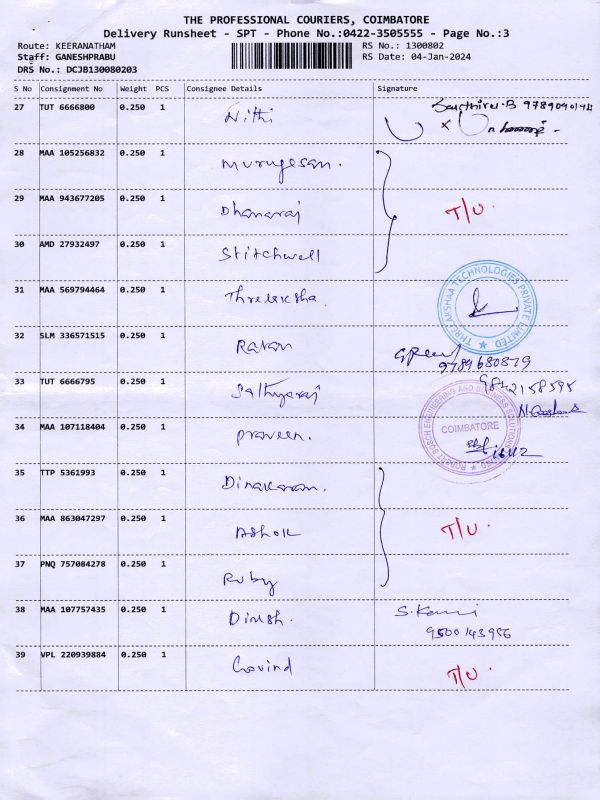 THE PROFESSIONAL COURIERS, COIMBATORE
Delivery Runsheet - SPT - Phone No.:0422-3505555 - Page No.:3
Route: KEERANATHAM
RS No.: 1300802
Staff: GANESHPRABU
RS Date: 04-Jan-2024
DRS No.: DCJB130080203
S No Consignment No Weight PCS Consignee Details Signature
27 TUT 6666800 0.250 1 Nithi
28 MAA 105256832 0.250 1 Murugesan.
29 MAA 943677205 0.250 1 Dhanaraj T/U.
30 AMD 27932497 0.250 1 Stitchwell
31 MAA 569794464 0.250 1
THREJAKSHAA TECHNOLOGIES PRIVATE LIMITED
32 SLM 336571515 0.250 1 9789680879
33 TUT 6666795 0.250 1 Sathyaraj 9842158595
34 MAA 107118404 0.250 1 Praveen.
ROBERT BOSCH ENGINEERING AND BUSINESS SOLUTIONS
COIMBATORE
35 TTP 5361993 0.250 1 Dinakaran.
36 MAA 863047297 0.250 1 Ashok T/U.
37 PNQ 757084278 0.250 1 Ruby
38 MAA 107757435 0.250 1 Dinesh. S. Kani
9500143956
39 VPL 220939884 0.250 1 Govind T/U.